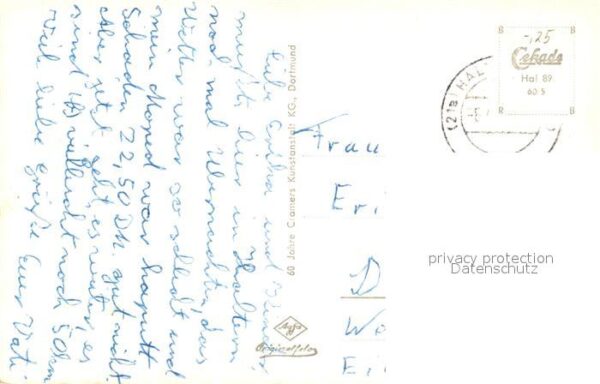 Liebe Erika und Kinder
mußte hier in Haltern
noch mal übernachten, das
Wetter war so schlecht und
mein Moped war kaputt
Schaden 22,50 DM. gut nicht.
Aber jetzt geht es weiter, es
sind ja vielleicht noch 50 km
Viele liebe Grüße Euer Vati
60 Jahre Cramers Kunstanstalt KG., Dortmund
Agfa
Originalfoto
-,25
Cekade
Hal 89
60 S
B B
R B
(21a) HAL
Frau
Eri
D
Wo
Ei
privacy protection
Datenschutz